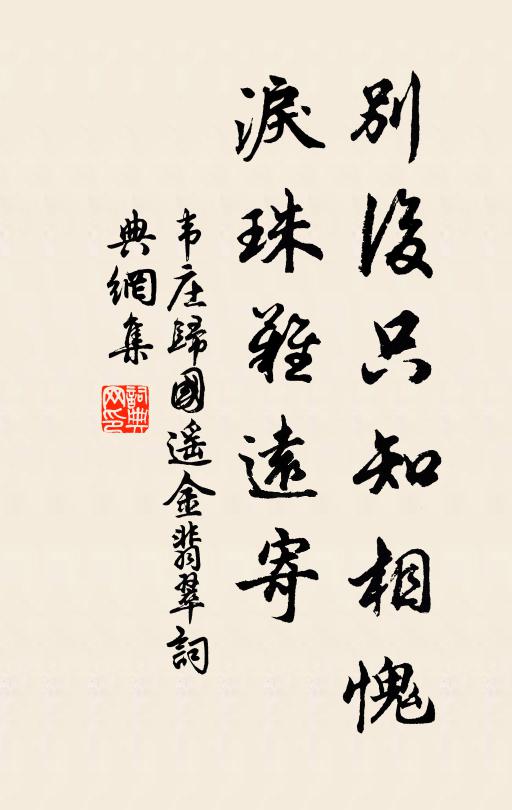 别後只知相愧
淚珠難遠寄
韦庄歸國遥金翡翠詞
典網集
詞典网印